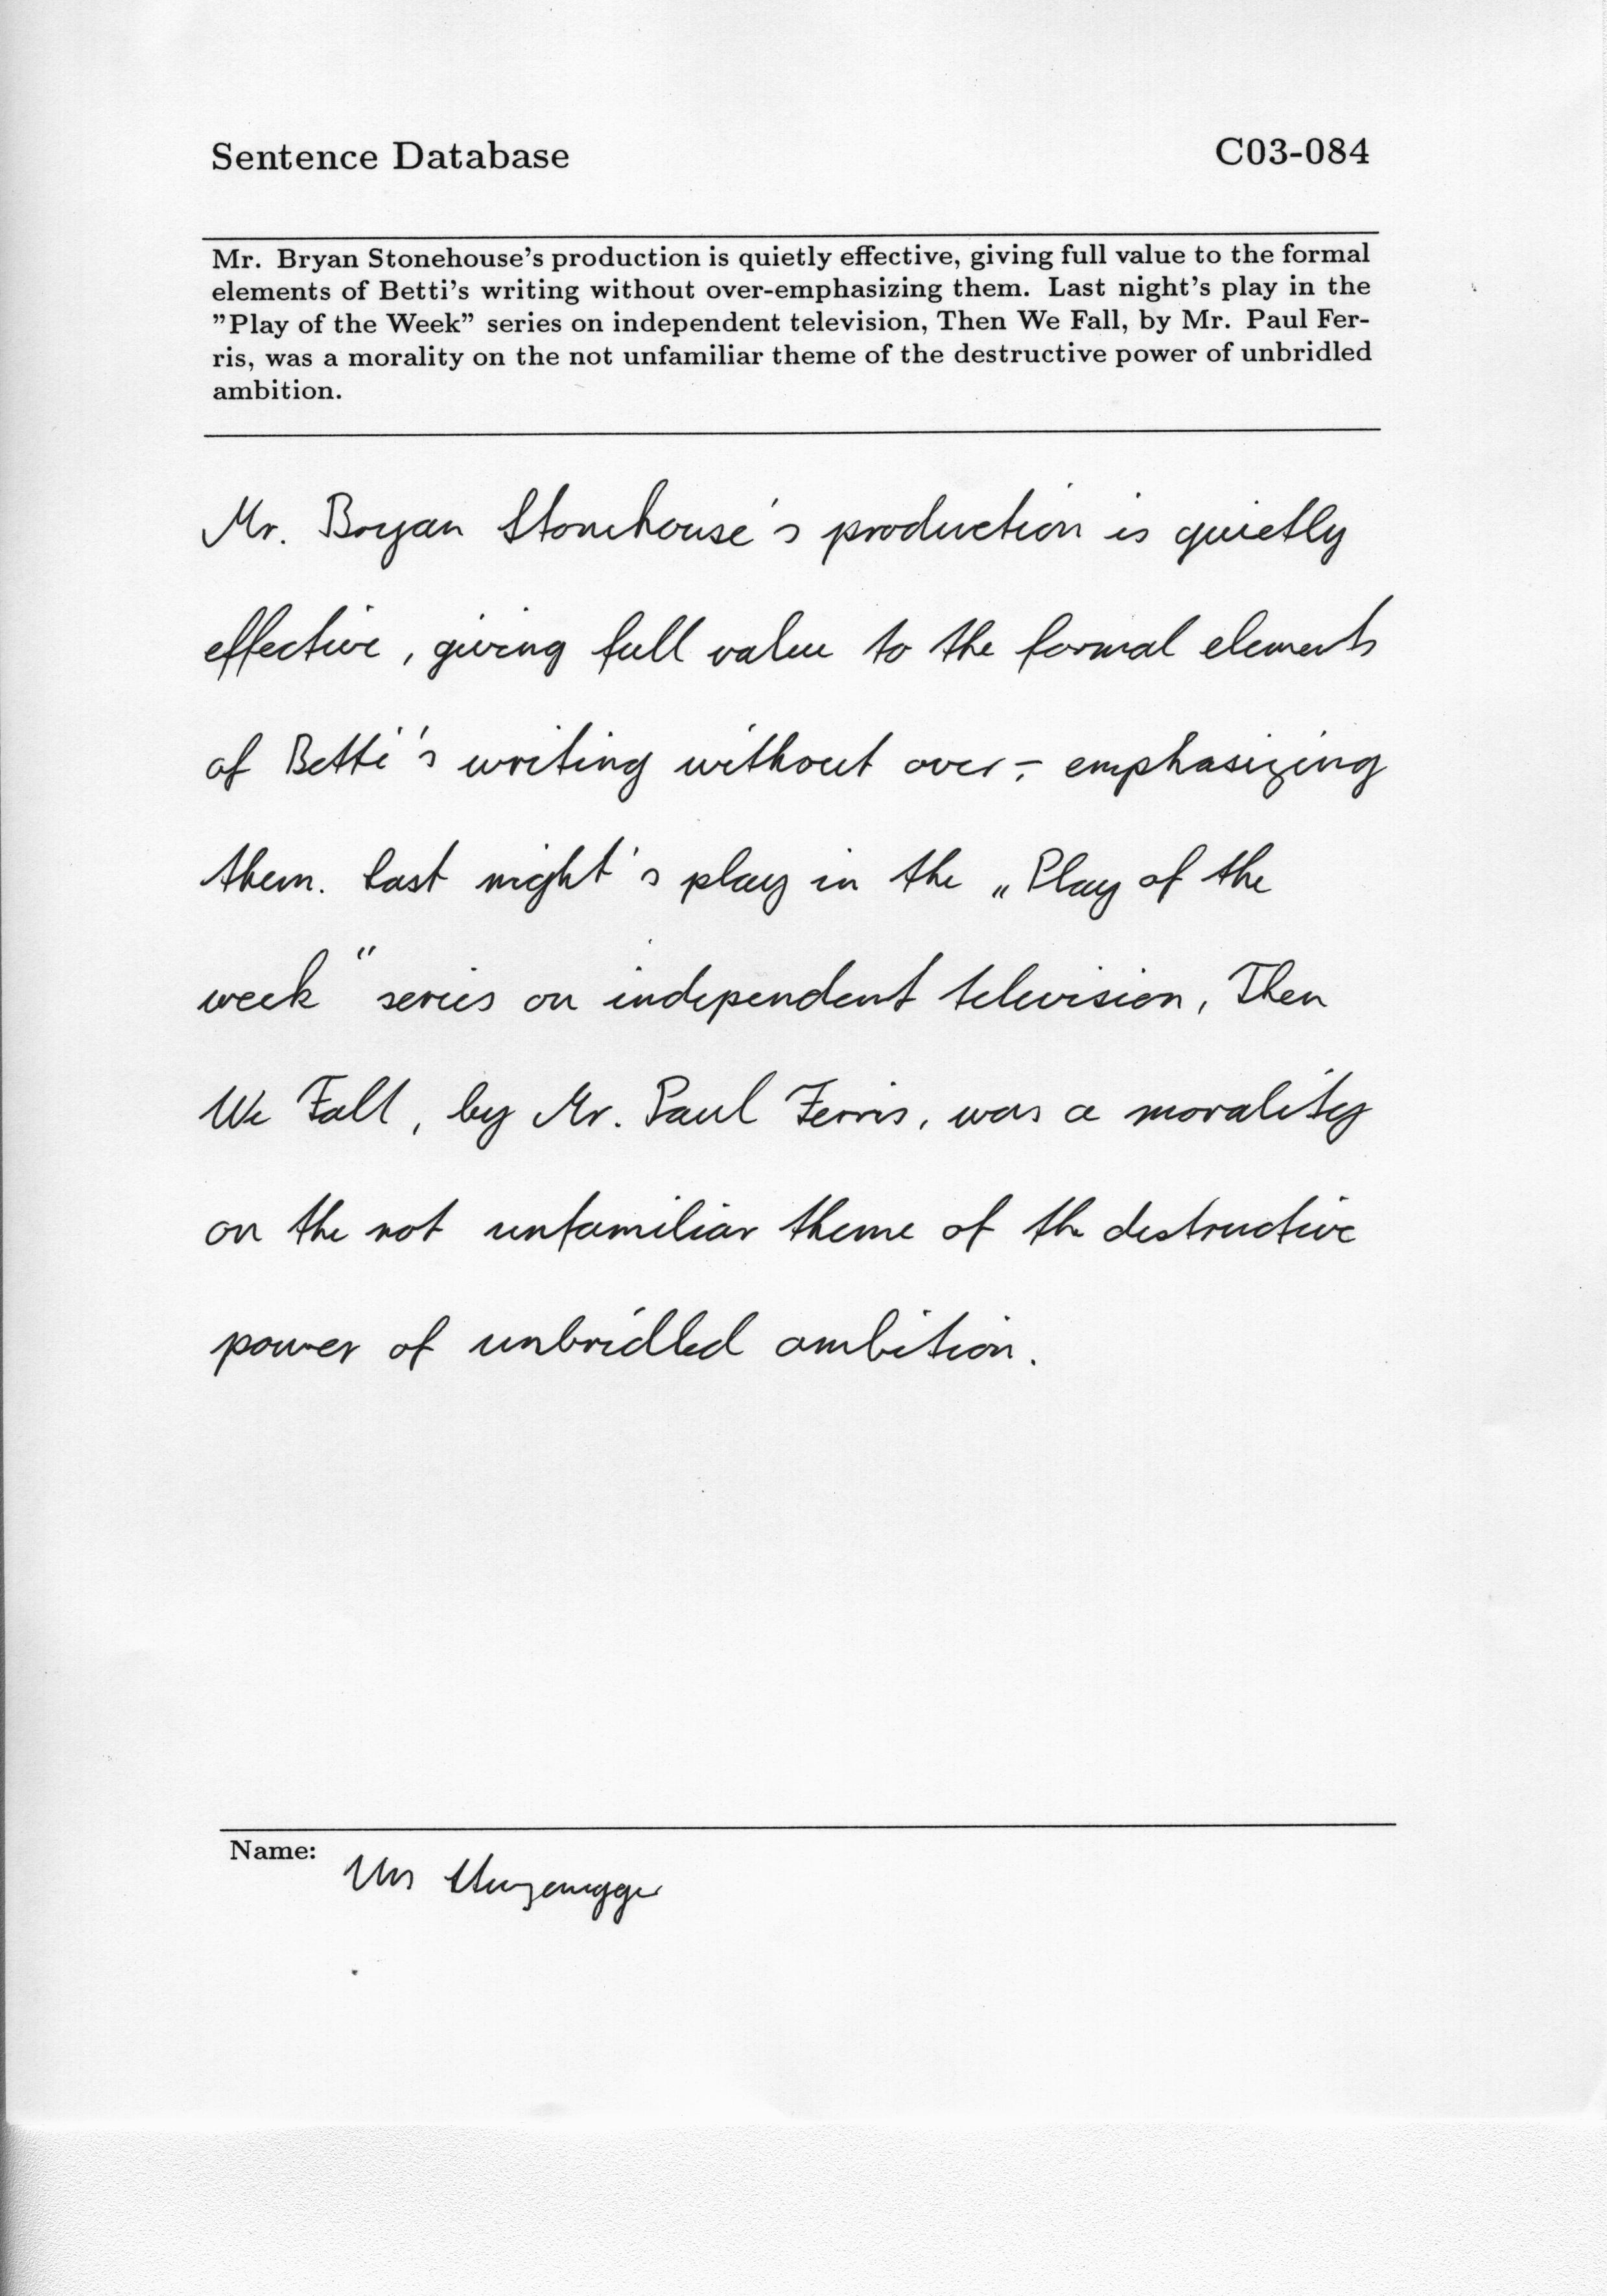 Sentence Database
C03-084
Mr. Bryan Stonehouse's production is quietly effective, giving full value to the formal
elements of Betti's writing without over-emphasizing them. Last night's play in the
”Play of the Week” series on independent television, Then We Fall, by Mr. Paul Fer-
ris, was a morality on the not unfamiliar theme of the destructive power of unbridled
ambition.
Mr. Bryan Stonehouse's production is quietly
effective, giving full value to the formal elements
of Betti's writing without over-emphasizing
them. Last night's play in the „Play of the
week“ series on independent television, Then
We Fall, by Mr. Paul Ferris, was a morality
on the not unfamiliar theme of the destructive
power of unbridled ambition.
Name:
Urs